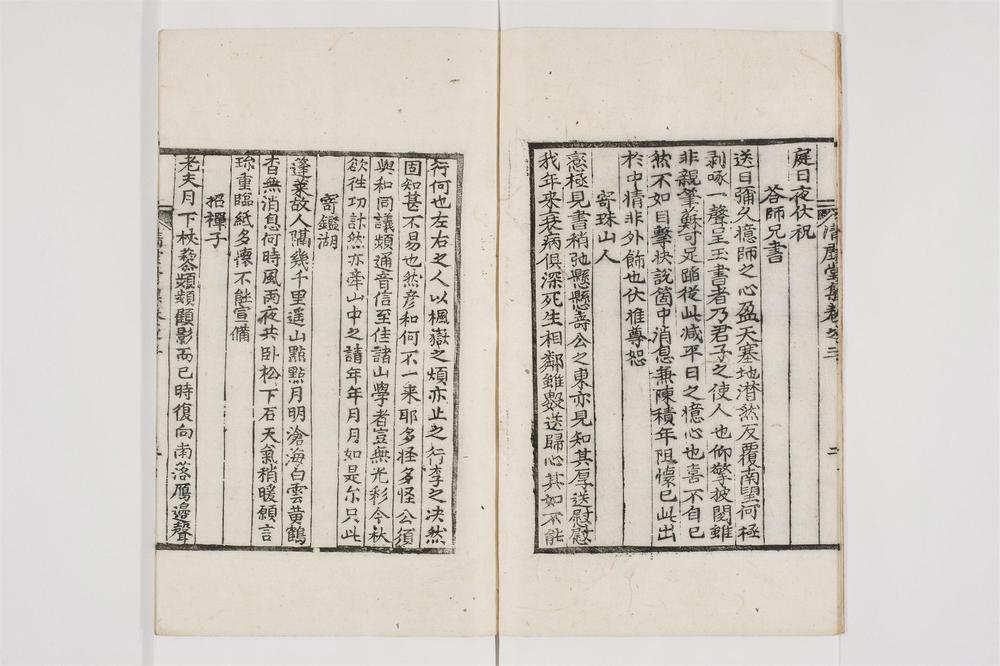 庭日夜伏祝
答師兄書
送日彌久憶師之心盈天塞地潜然反覆南望何極
剥啄一聲呈玉書者乃君子之使人也仰擎披閱雖
非親筆蘇可足踵從此减平日之憶心也喜不自已
然不如目擊快說箇中消息兼陳積年阻懷已此出
於中情非外飾也伏惟尊恕
寄珠山人
戀極見書稍弛懸懸壽公之東亦見知其厚送慰慰
我年來衰病俱深死生相鄰雖數送歸心其如不能
行何也左右之人以楓嶽之煩亦止之行李之决然
固知甚不易也然彦和何不一来耶多怪多怪公須
與和同議頻通音信至佳諸山學者豈無光彩今秋
欲徃功計然亦牽山中之請年年月月如是尔只此
寄鑑湖
蓬萊故人隔幾千里遥山點點月明滄海白雲黄鶴
杳無消息何時風雨夜共卧松下石天氣稍暖願言
珎重臨紙多懷不能宣備
招禪子
老夫月下杖藜頻頻顧影而已時復向南落鴈邉聲
清虛堂集卷之三